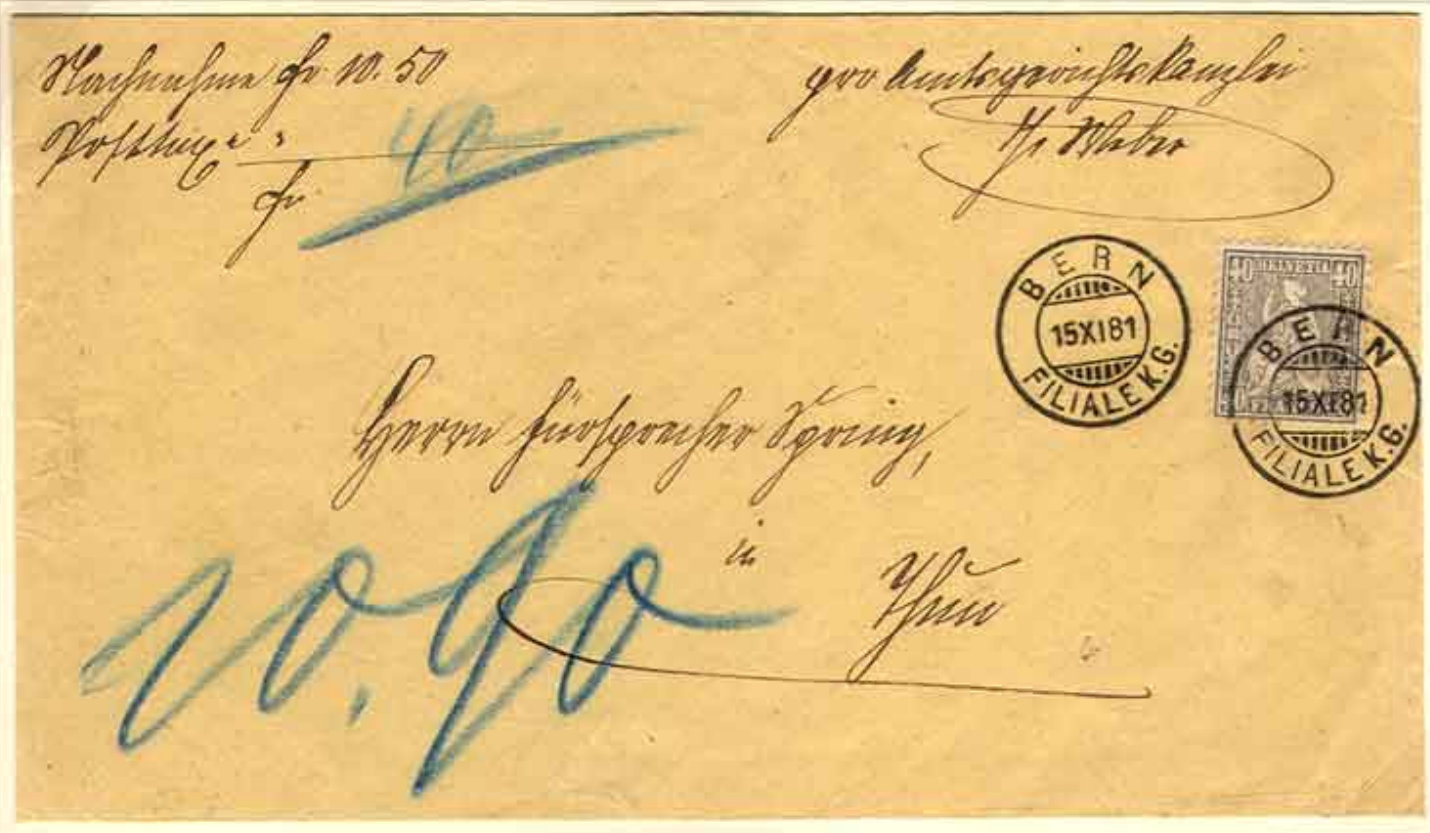 Nachnahme Fr 10.50
Posttaxe " "
40
Fr
pro Amtsgerichtskanzlei
Weber
BERN
15XI81
FILIALE K.G.
40 HELVETIA 40
BERN
15XI81
FILIALE K.G.
Herrn Fürsprecher Spring,
in
Thun
10.90